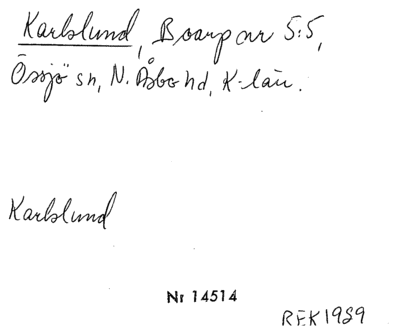 Karlslund, Boarp nr 5:5,
Össjö sn, N. Åsbo hd, K-län.
Karlslund
Nr 14514
REK 1989